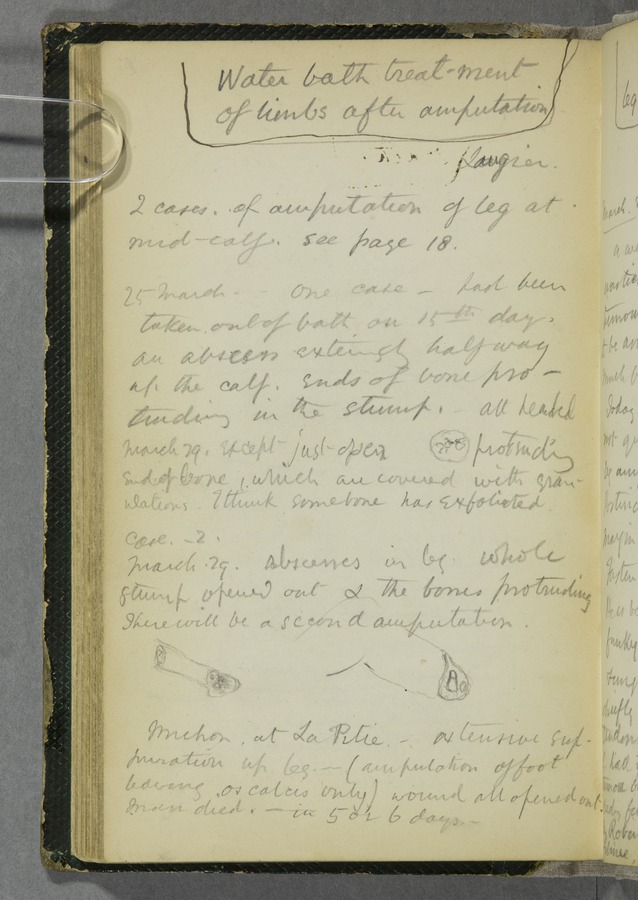 Water bath treat-ment
of limbs after amputation
Laugier.
2 cases. of amputation of leg at
mid-calf. see page 18.
25 March - one case - had been
taken out of bath on 15th day.
an abscess extending half way
up the calf. Ends of bone pro-
truding in the stump. - all healed
March 29. Except just open protruding
end of bone, which are covered with gran-
ulations. I think some bone has exfoliated.
Case. -2.
March 29. Abscesses in leg. whole
stump opened out & the bones protruding
There will be a second amputation.
Michon. at La Pitie. - extensive sup-
puration up leg. - (amputation of foot
leaving os calcis only) wound all opened out.
Man died. - in 5 or 6 days. -
leg
March.